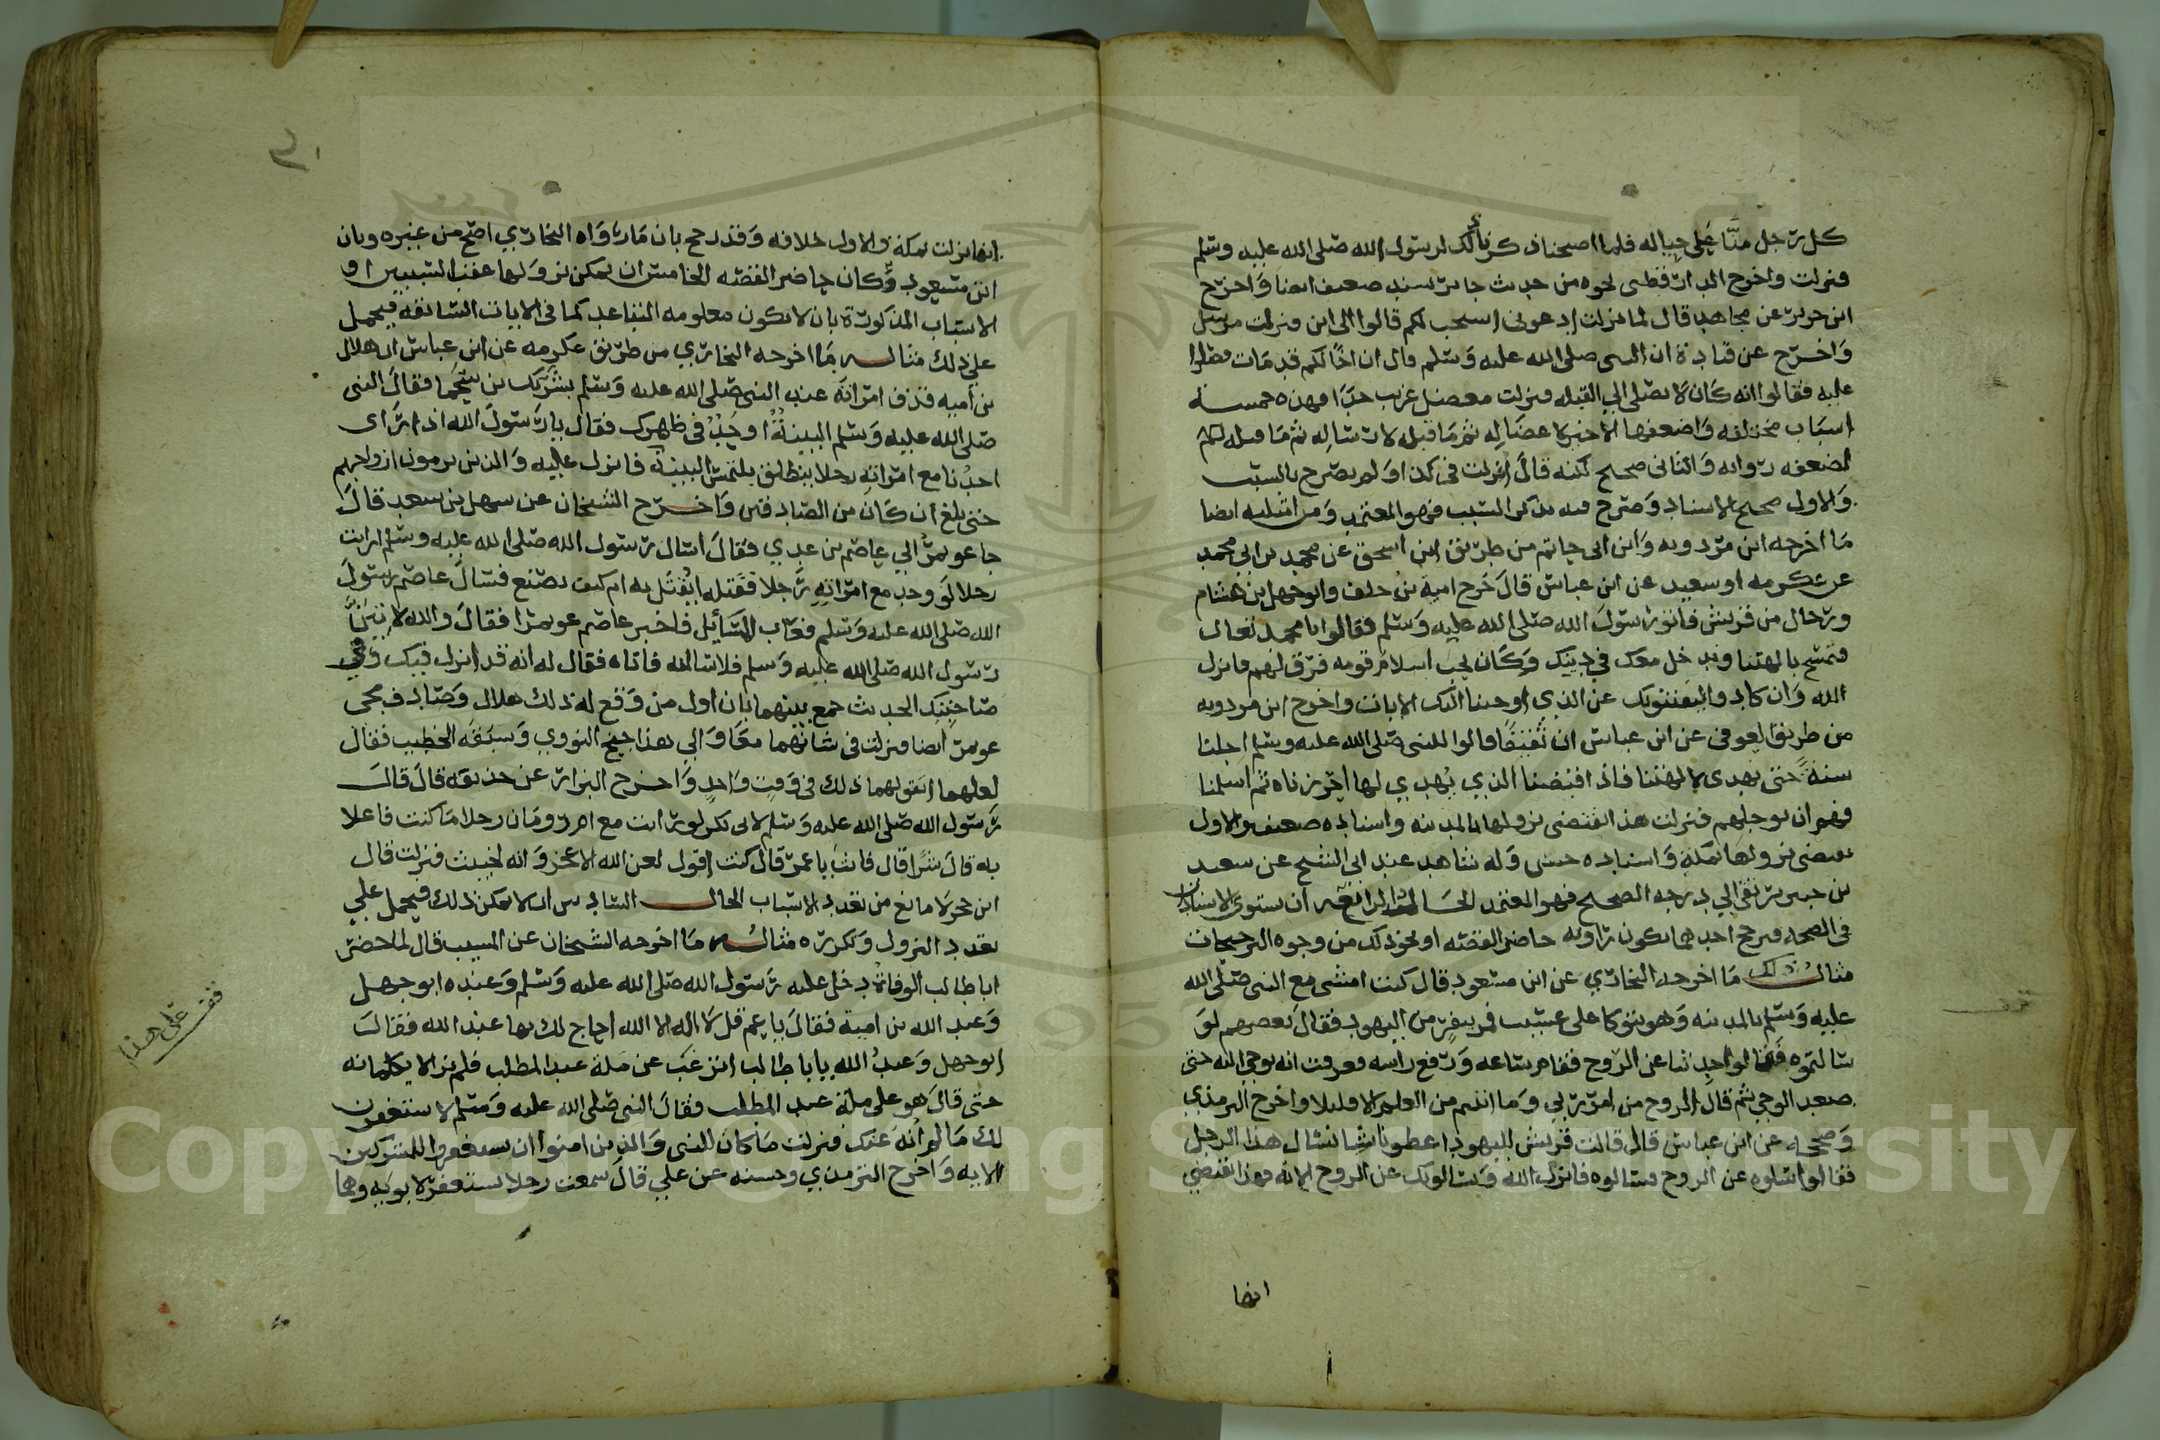 كل رجل منا على حياله فلما اصبحنا ذكرنا ذلك لرسول الله صلى الله عليه وسلم
فنزلت واخرج الدارقطني نحوه من حديث جابر بسند ضعيف ايضا واخرج
ابن جرير عن مجاهد قال لما نزلت ادعوني استجب لكم قالوا الى اين فنزلت مرسل
واخرج عن قتادة ان النبي صلى الله عليه وسلم قال ان اخا لكم قد مات فصلوا
عليه فقالوا انه كان لا يصلي الى القبلة فنزلت معضل غريب جدا فهذه خمسة
اسباب مختلفه واضعفها الاخير لاعضاله ثم ما قبله لارساله ثم ما قبله
لضعف رواته والثاني صحيح لكنه قال انزلت في كذا ولم يصرح بالسبب
والاول صحيح الاسناد وصرح فيه بذكر السبب فهو المعتمد ومن امثلته ايضا
ما اخرجه ابن مردويه وابن ابي حاتم من طريق ابن اسحق عن محمد بن ابي محمد
عن عكرمه او سعيد عن ابن عباس قال خرج امية بن خلف وابو جهل بن هشام
ورجال من قريش فاتوا رسول الله صلى الله عليه وسلم فقالوا يا محمد تعال
فتمسح بالهتنا وندخل معك في دينك وكان يحب اسلام قومه فرق لهم فانزل
الله وان كادوا ليفتنونك عن الذي اوحينا اليك الايات واخرج ابن مردويه
من طريق العوفي عن ابن عباس ان ثقيفا قالوا للنبي صلى الله عليه وسلم اجلنا
سنة حتى يهدى لالهتنا فاذا اقبضنا الذي يهدي لها احرزناه ثم اسلمنا
فهم ان يوجلهم فنزلت هذا يقتضي نزولها بالمدينه واسناده ضعيف والاول
يقتضي نزولها بمكة واسناده حسن وله شاهد عند ابي الشيخ عن سعيد
بن جبير يرتقي الى درجه الصحيح فهو المعتمد الحال الرابع ان يستوي الاسنادان
في الصحه فيرجح احدهما بكون راويه حاضر القصه او نحو ذلك من وجوه الترجيحات
مثال ذلك ما اخرجه البخاري عن ابن مسعود قال كنت امشي مع النبي صلى الله
عليه وسلم بالمدينه وهو يتوكا على عسيب فمر بنفر من اليهود فقال بعضهم لو
سالتموه فقالوا حدثنا عن الروح فقام ساعه ورفع راسه فعرفت انه يوحى اليه حتى
صعد الوحي ثم قال الروح من امر ربي وما اوتيتم من العلم الا قليلا واخرج الترمذي
وصححه عن ابن عباس قال قالت قريش لليهود اعطونا شيا نسال هذا الرجل
فقالوا اسالوه عن الروح فسالوه فانزل الله ويسالونك عن الروح الايه فهذا يقتضي
انها
انها نزلت بمكة والاول خلافه وقد رجح بان ما رواه البخاري اصح من غيره وبان
ابن مسعود كان حاضر القصه الخامس ان يمكن نزولها عقب السببين او
الاسباب المذكورة بان لا تكون معلومه التباعد كما في الايات السابقة فيحمل
على ذلك مثاله ما اخرجه البخاري من طريق عكرمه عن ابن عباس ان هلال
بن اميه قذف امراته عند النبي صلى الله عليه وسلم بشريك بن سحما فقال النبي
صلى الله عليه وسلم البينة او حد في ظهرك فقال يا رسول الله اذا راى
احدنا مع امراته رجلا ينطلق يلتمس البينة فانزل عليه والذين يرمون ازواجهم
حتى بلغ ان كان من الصادقين واخرج الشيخان عن سهل بن سعد قال
جا عويمر الى عاصم بن عدي فقال اسال رسول الله صلى الله عليه وسلم ارايت
رجلا لو وجد مع امراته رجلا فقتله ايقتل به ام كيف يصنع فسال عاصم رسول
الله صلى الله عليه وسلم فعاب السائل فاخبر عاصم عويمرا فقال والله لاتين
رسول الله صلى الله عليه وسلم فلاسالنه فاتاه فقال له انه قد انزل فيك وفي
صاحبتك الحديث جمع بينهما بان اول من وقع له ذلك هلال وصادف مجى
عويمر ايضا فنزلت في شانهما معا والى هذا جنح النووي وسبقه الخطيب فقال
لعلهما اتفق لهما ذلك في وقت واحد واخرج البزار عن حذيفه قال قال
رسول الله صلى الله عليه وسلم لابي بكر لو رايت مع ام رومان رجلا ما كنت فاعلا
به قال شرا قال فانت يا عمر قال كنت اقول لعن الله الاعجز وانه لخبيث فنزلت قال
ابن حجر لا مانع من تعدد الاسباب الحال السادس ان لا يمكن ذلك فيحمل على
تعدد النزول وتكرره مثاله ما اخرجه الشيخان عن المسيب قال لما حضر
ابا طالب الوفاة دخل عليه رسول الله صلى الله عليه وسلم وعنده ابو جهل
وعبد الله بن امية فقال يا عم قل لا اله الا الله احاج لك بها عند الله فقال
ابو جهل وعبد الله يا ابا طالب اترغب عن ملة عبد المطلب فلم يزالا يكلمانه
حتى قال هو على ملة عبد المطلب فقال النبي صلى الله عليه وسلم لاستغفرن
لك ما لم انه عنك فنزلت ما كان للنبي والذين امنوا ان يستغفروا للمشركين
الايه واخرج الترمذي وحسنه عن علي قال سمعت رجلا يستغفر لابويه وهما
قف على هذا
Copyright © King S University